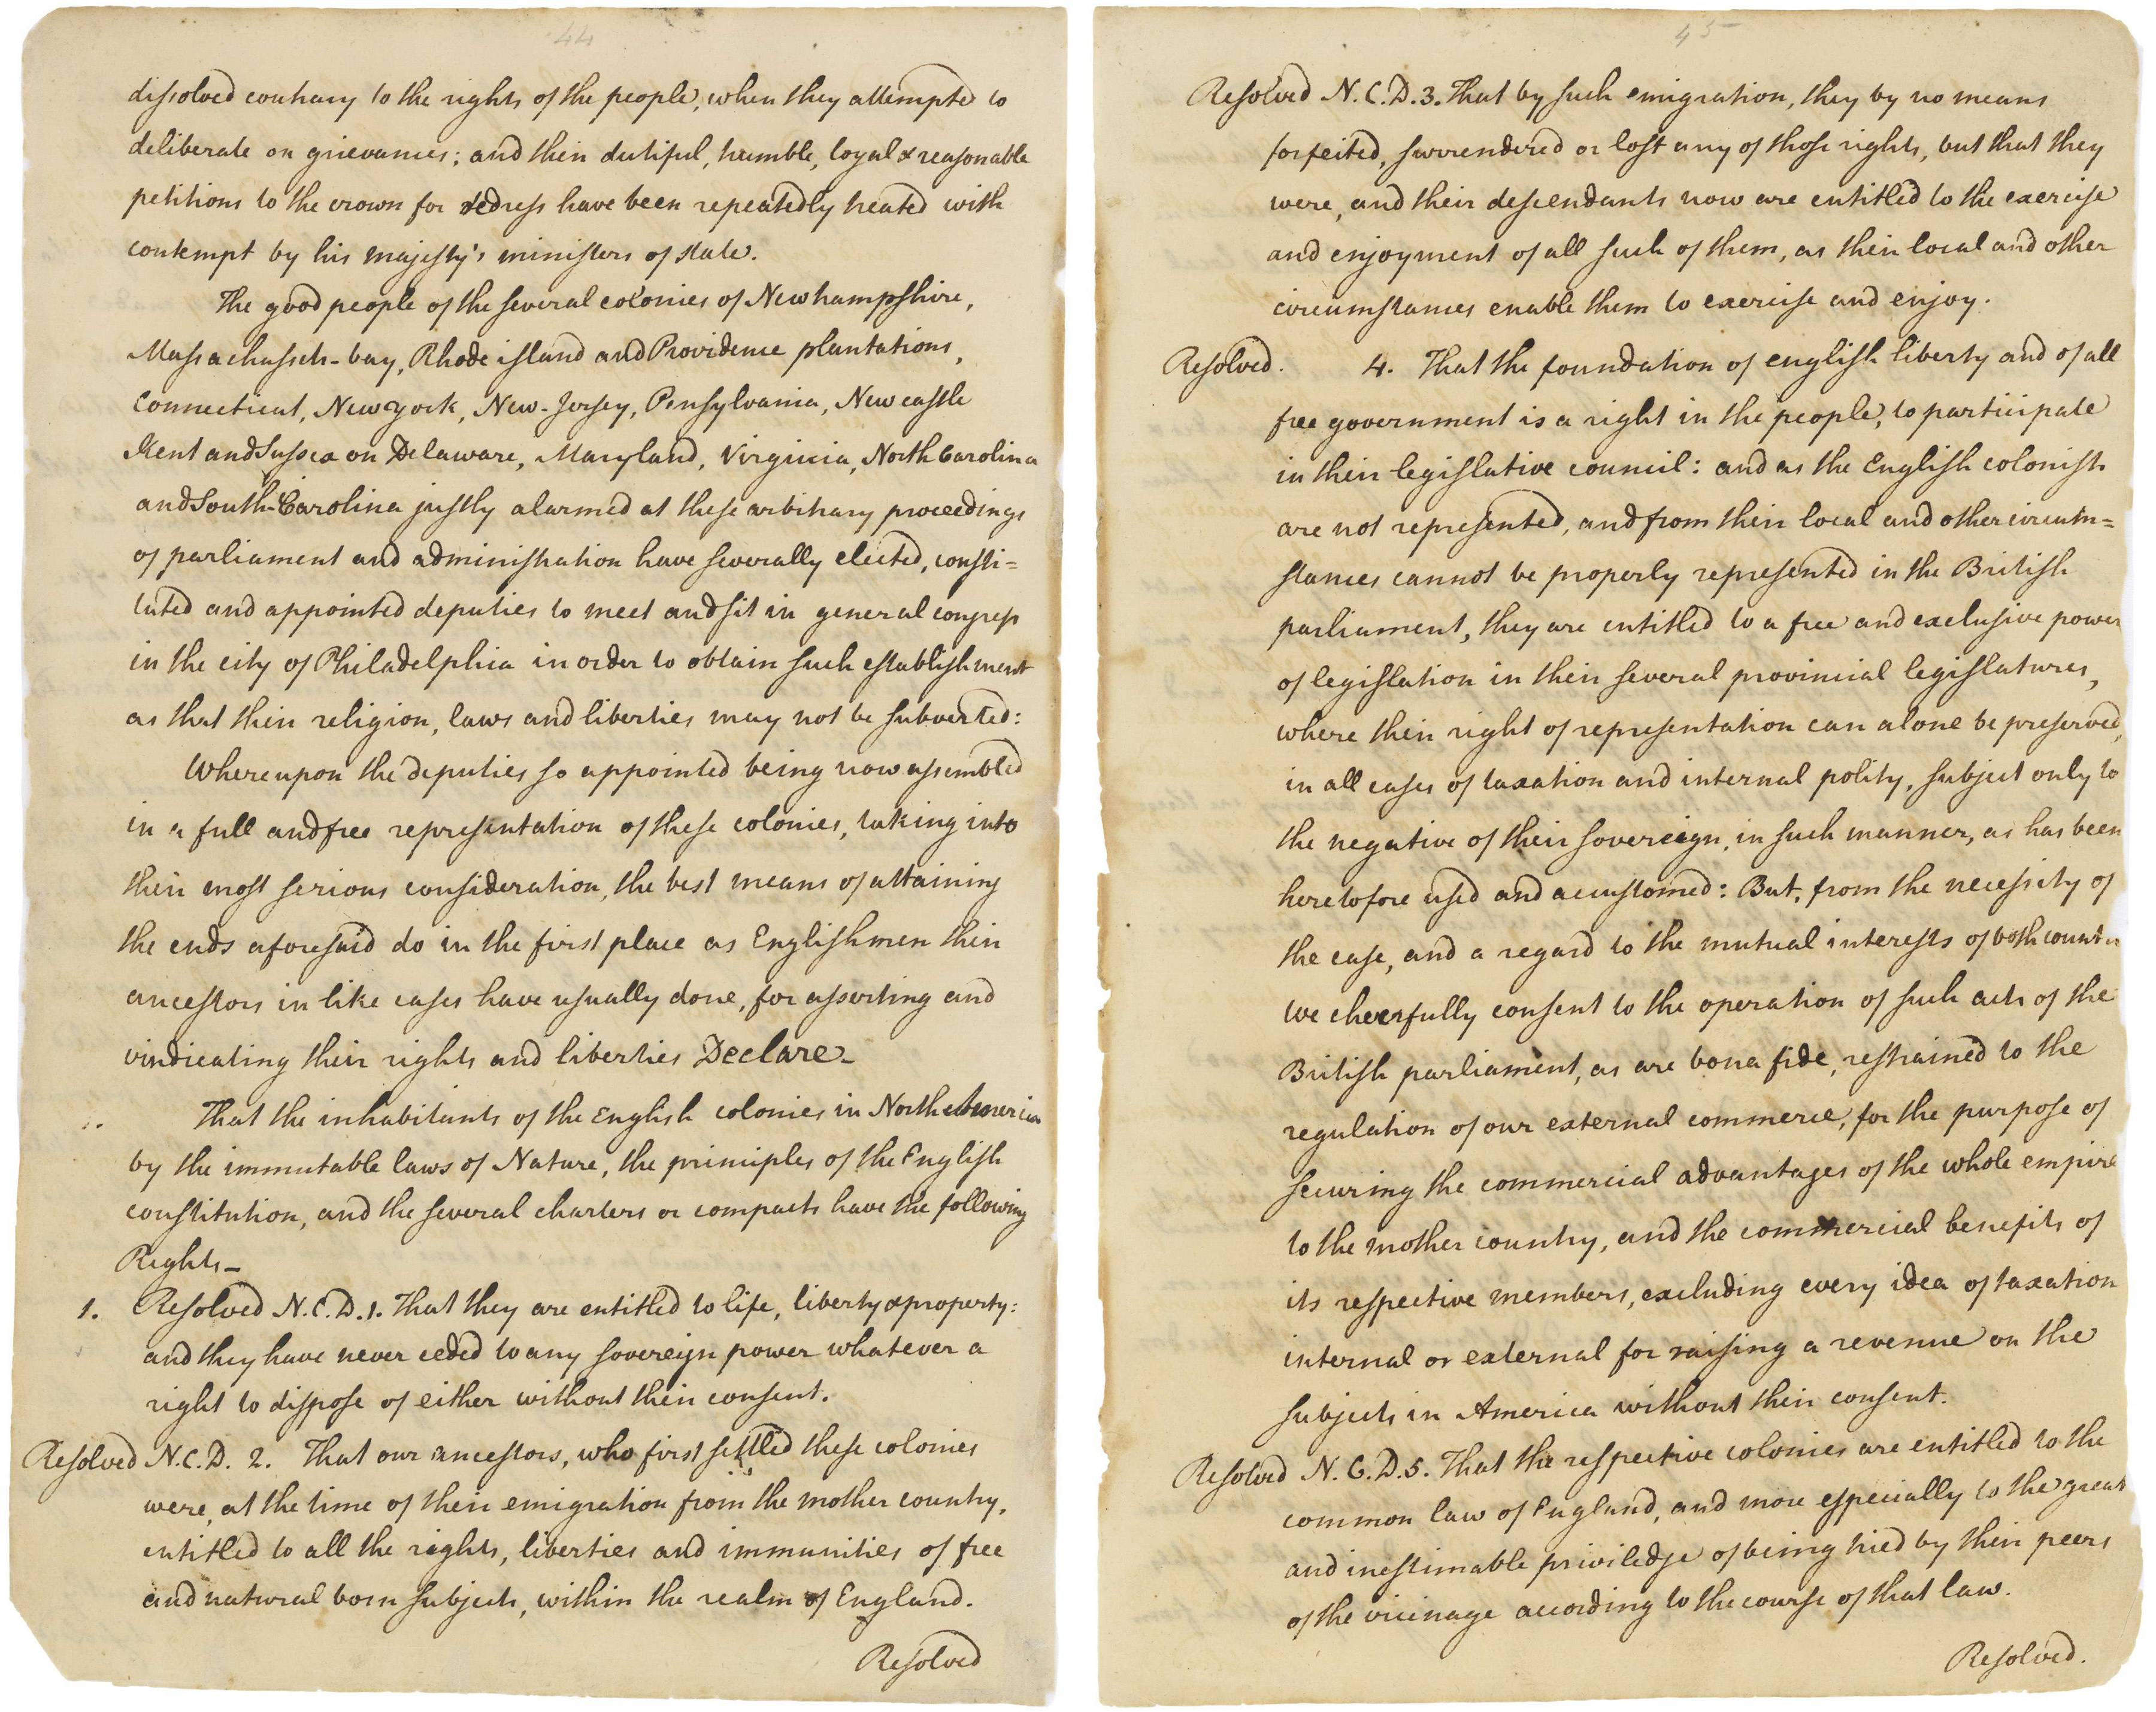 44
dissolved contrary to the rights of the people, when they attempted to
deliberate on grievances; and their dutiful, humble, loyal & reasonable
petitions to the crown for redress have been repeatedly treated with
contempt by his majesty's ministers of state.
The good people of the several colonies of Newhampshire,
Massachussets-bay, Rhode island and Providence plantations,
Connecticut, New york, New-Jersey, Pensylvania, Newcastle
Kent and Sussex on Delaware, Maryland, Virginia, North Carolina
and South-Carolina justly alarmed at these arbitrary proceedings
of parliament and administration have severally elected, consti=
tuted and appointed deputies to meet and sit in general congress
in the city of Philadelphia in order to obtain such establishment
as that their religion, laws and liberties may not be subverted:
Whereupon the deputies so appointed being now assembled
in a full and free representation of these colonies, taking into
their most serious consideration, the best means of attaining
the ends aforesaid do in the first place as Englishmen their
ancestors in like cases have usually done, for asserting and
vindicating their rights and liberties Declare-
That the inhabitants of the English colonies in North America
by the immutable laws of Nature, the principles of the English
constitution, and the several charters or compacts have the following
Rights-
1. Resolved N.C.D. 1. That they are entitled to life, liberty & property:
and they have never ceded to any sovereign power whatever a
right to dispose of either without their consent.
Resolved N.C.D. 2. That our ancestors, who first settled these colonies
were, at the time of their emigration from the mother country,
entitled to all the rights, liberties and immunities of free
and natural born subjects, within the realm of England.
Resolved
45
Resolved N.C.D. 3. That by such emigration, they by no means
forfeited, surrendered or lost any of those rights, but that they
were, and their descendants now are entitled to the exercise
and enjoyment of all such of them, as their local and other
circumstances enable them to exercise and enjoy.
Resolved. 4. That the foundation of english liberty and of all
free government is a right in the people, to participate
in their legislative council: and as the English colonists
are not represented, and from their local and other circum=
stances cannot be properly represented in the British
parliament, they are entitled to a free and exclusive power
of legislation in their several provincial legislatures,
where their right of representation can alone be preserved,
in all cases of taxation and internal polity, subject only to
the negative of their sovereign, in such manner, as has been
heretofore used and accustomed: But, from the necessity of
the case, and a regard to the mutual interests of both countries
we cheerfully consent to the operation of such acts of the
British parliament, as are bona fide, restrained to the
regulation of our external commerce, for the purpose of
securing the commercial advantages of the whole empire
to the mother country, and the commercial benefits of
its respective members, excluding every idea of taxation
internal or external for raising a revenue on the
subjects in America without their consent.
Resolved N.C.D. 5. That the respective colonies are entitled to the
common law of England, and more especially to the great
and inestimable priviledge of being tried by their peers
of the vicinage according to the course of that law.
Resolved.